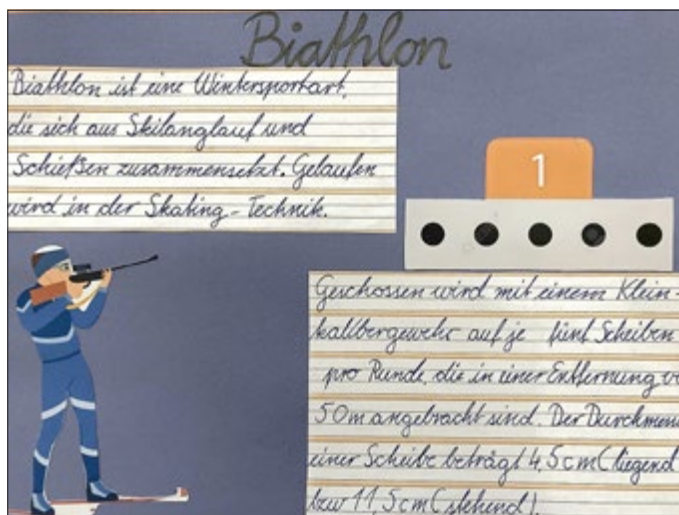 Biathlon
Biathlon ist eine Wintersportart,
die sich aus Skilanglauf und
Schießen zusammensetzt. Gelaufen
wird in der Skating-Technik.
1
Geschossen wird mit einem Klein-
kalibergewehr auf je fünf Scheiben
pro Runde, die in einer Entfernung
50m angebracht sind. Der
einer Scheibe beträgt 4,5cm (liegend
bzw 11,5cm (stehend).